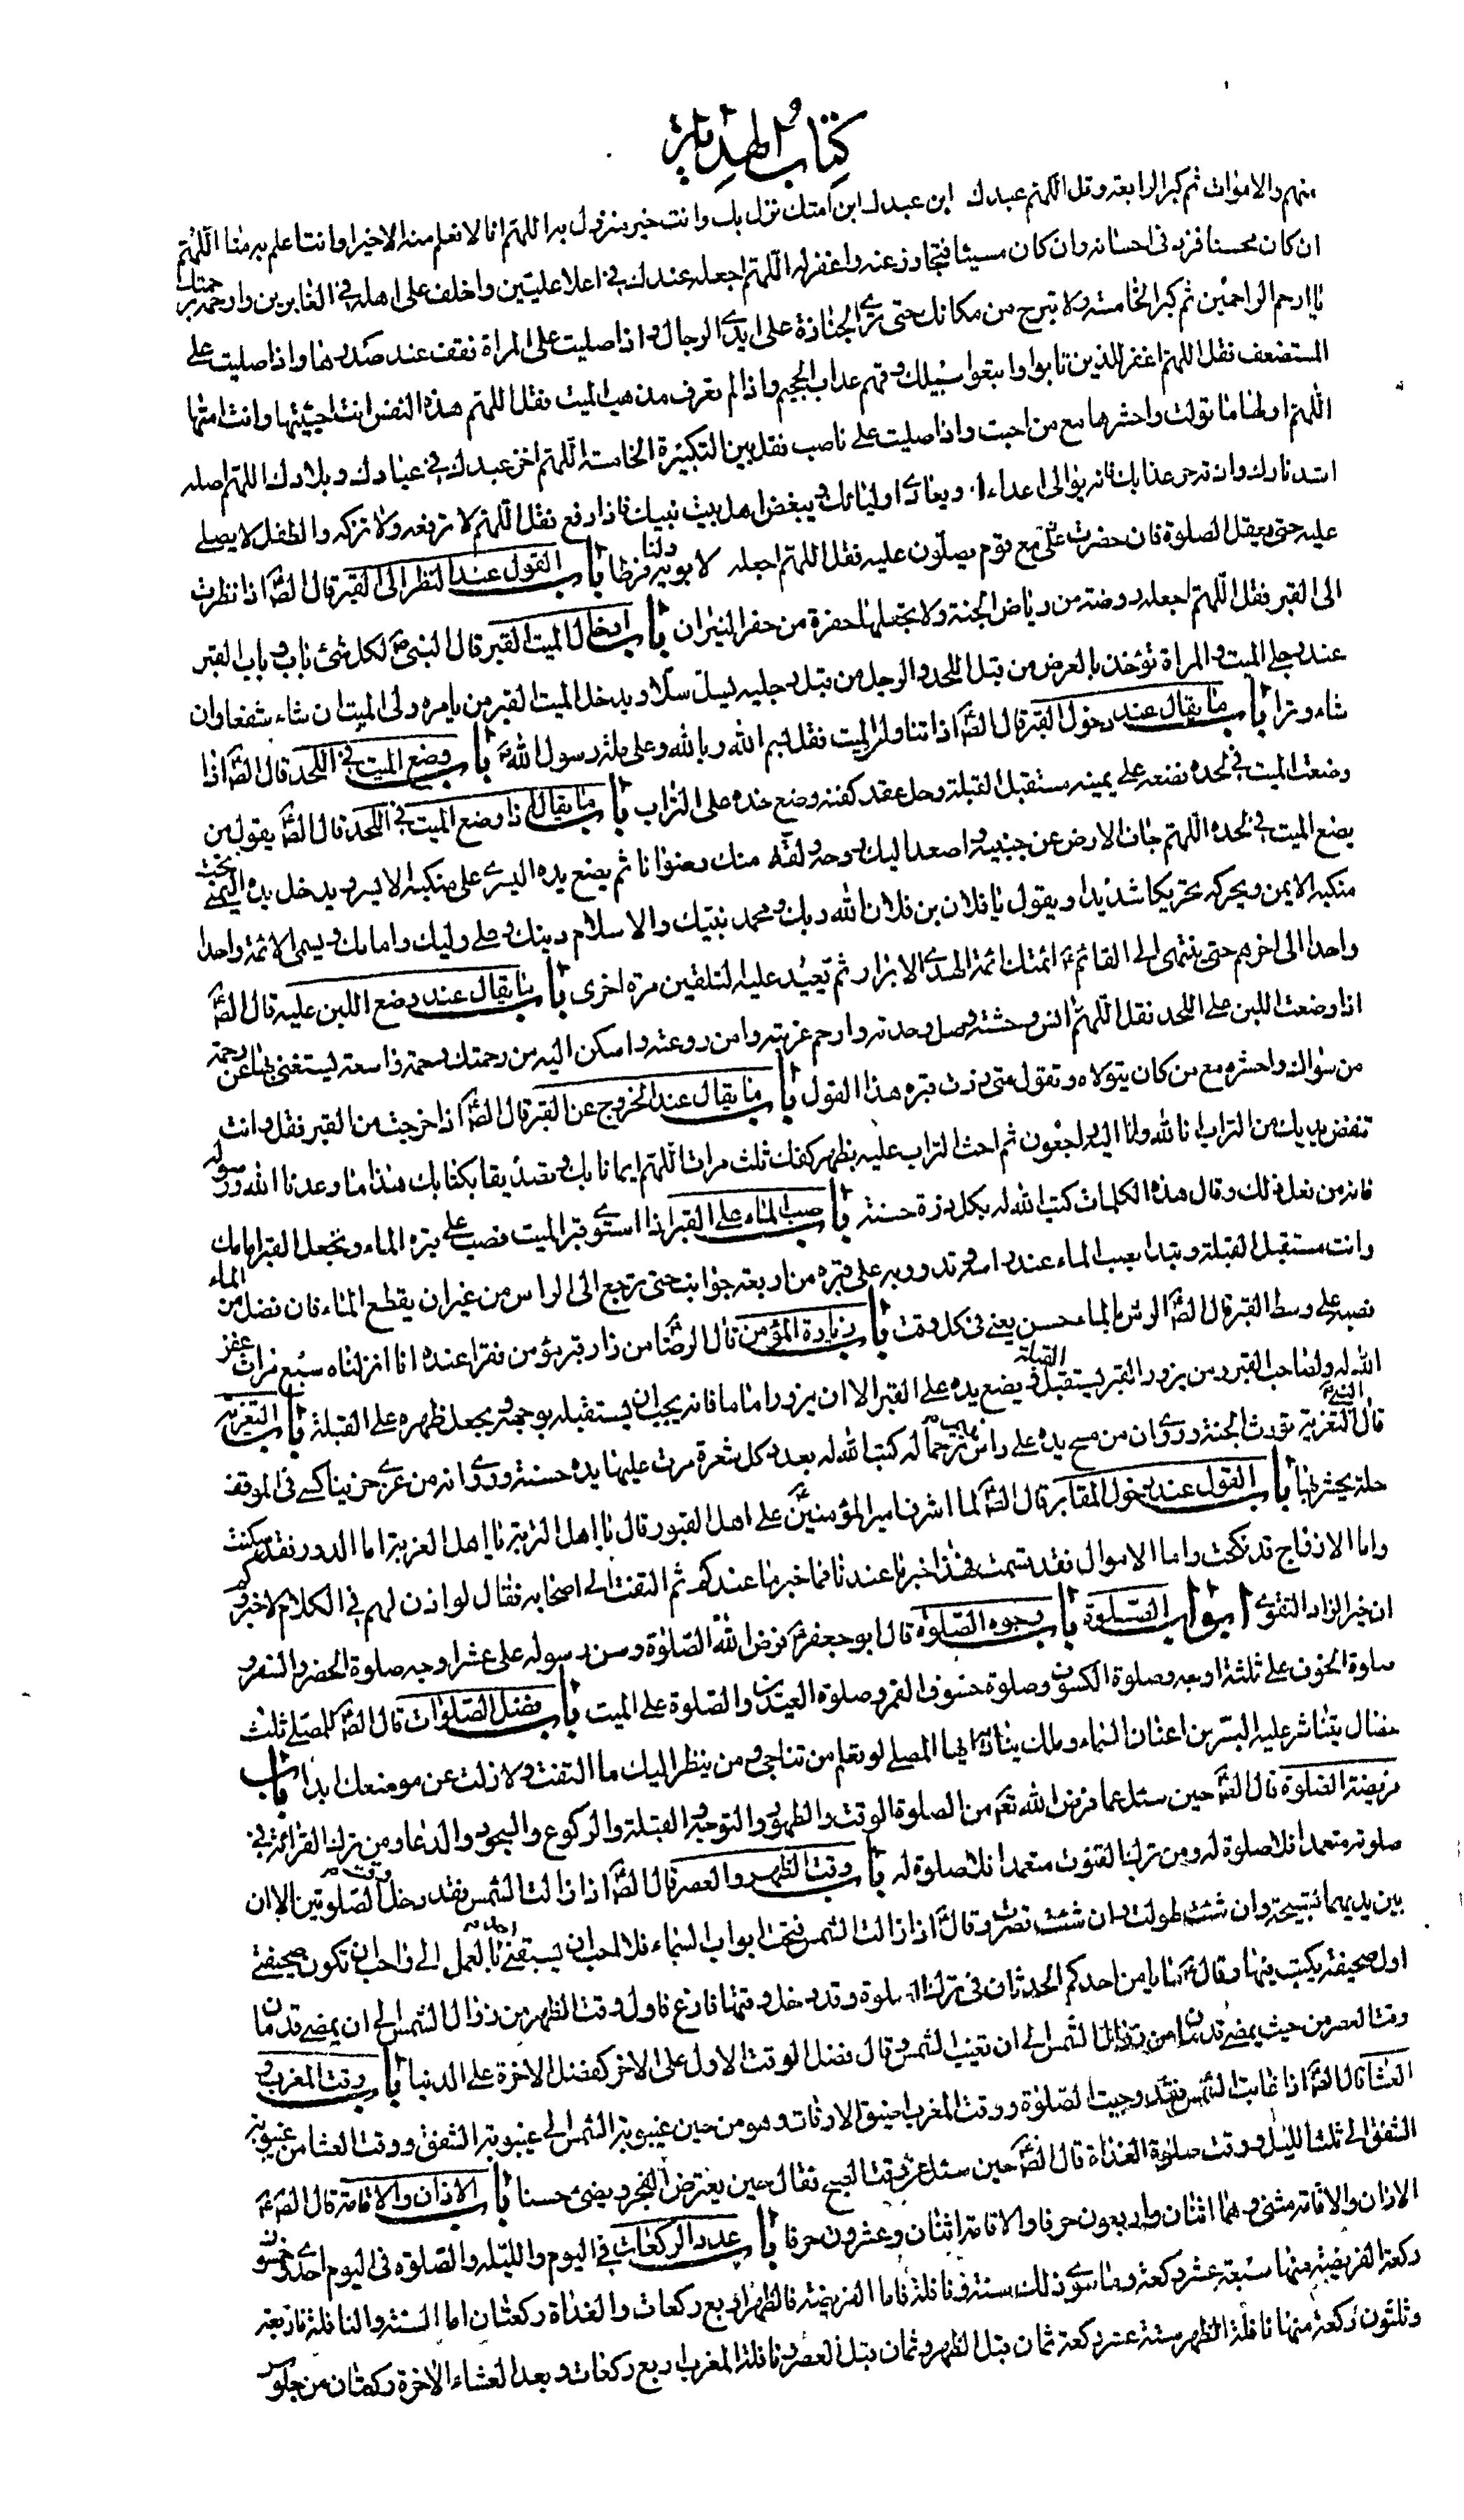 كتاب الهداية
منهم والاموات ثم كبر الرابعة وقل اللهم عبدك ابن عبدك ابن امتك نزل بك وانت خير منزول به اللهم انا لا نعلم منه الا خيرا وانت اعلم به منا اللهم
ان كان محسنا فزد في احسانه وان كان مسيئا فتجاوز عنه واغفر له اللهم اجعله عندك في اعلا عليين واخلف على اهله في الغابرين وارحمه برحمتك
يا ارحم الراحمين ثم كبر الخامسة ولا تبرح من مكانك حتى ترى الجنازة على ايدى الرجال واذا صليت على المراة فقف عند صدرها واذا صليت على
المستضعف فقل اللهم اغفر للذين تابوا واتبعوا سبيلك وقهم عذاب الجحيم واذا لم تعرف مذهب الميت فقل اللهم هذه النفس انت احييتها وانت امتها
اللهم اولها ما تولت واحشرها مع من احبت واذا صليت على ناصب فقل بين التكبيرة الخامسة اللهم اخز عبدك في عبادك وبلادك اللهم اصله
اشد نارك واذقه حر عذابك فانه يوالى اعداءك ويعادى اوليائك ويبغض اهل بيت نبيك فاذا رفع فقل اللهم لا ترفعه ولا تزكه والطفل لا يصلى
عليه حتى يعقل الصلوة فان حضرت مع قوم يصلون عليه فقل اللهم اجعله لابويه ولنا فرطا باب القول عند النظر الى القبر قال الص اذا نظرت
الى القبر فقل اللهم اجعله روضة من رياض الجنة ولا تجعلها حفرة من حفر النيران باب ادخال الميت القبر قال النبي ص لكل شئ باب وباب القبر
عند رجلي الميت والمراة تؤخذ بالعرض من قبل اللحد والرجل من قبل رجليه يسل سلا ويدخل الميت القبر من يامره ولى الميت ان شاء شفعا وان
شاء وترا باب ما يقال عند دخول القبر قال الص اذا تناولت الميت فقل بسم الله وبالله وعلى ملة رسول الله باب وضع الميت في اللحد قال الص اذا
وضعت الميت في لحده فضعه على يمينه مستقبل القبلة وحل عقد كفنه وضع خده على التراب باب ما يقال اذا وضع الميت في اللحد قال الص يقول من
يضع الميت في لحده اللهم جاف الارض عن جنبيه واصعد اليك روحه ولقه منك رضوانا ثم يضع يده اليسرى على منكبه الايسر ويدخل يده اليمنى تحت
منكبه الايمن ويحركه تحريكا شديدا ويقول يا فلان بن فلان الله ربك ومحمد نبيك والاسلام دينك وعلى وليك وامامك ويسمى الائمة واحدا
واحدا الى اخرهم حتى ينتهى الى القائم ع ائمتك ائمة الهدى الابرار ثم تعيد عليه التلقين مرة اخرى باب ما يقال عند وضع اللبن عليه قال الص
اذا وضعت اللبن على اللحد فقل اللهم انس وحشته وصل وحدته وارحم غربته وامن روعته واسكن اليه من رحمتك رحمة واسعة يستغنى بها عن رحمة
من سواك واحشره مع من كان يتولاه وتقول متى زرت قبره هذا القول باب ما يقال عند الخروج عن القبر قال الص اذا خرجت من القبر فقل وانت
تنفض يديك من التراب انا لله وانا اليه راجعون ثم احث التراب عليه بظهر كفك ثلث مرات اللهم ايمانا بك وتصديقا بكتابك هذا ما وعدنا الله ورسوله
فانه من فعل ذلك وقال هذه الكلمات كتب الله له بكل ذرة حسنة باب صب الماء على القبر اذا استوى قبر الميت فصب على قبره الماء وتجعل القبر امامك
وانت مستقبل القبلة وتبدا بصب الماء عند راسه وتدور به على قبره من اربعة جوانب حتى ترجع الى الراس من غير ان يقطع الماء فان فضل من الماء
فصبه على وسط القبر قال الص الرش بالماء حسن يعنى في كل وقت باب زيارة المؤمن قال الرضا من زار قبر مؤمن فقرا عنده انا انزلناه سبع مرات غفر
الله له ولصاحب القبر ومن يزور القبر يستقبل القبلة ويضع يده على القبر الا ان يزور اماما فانه يجب ان يستقبله بوجهه ويجعل ظهره على القبلة باب التعزية
قال النبي التعزية تورث الجنة وروى ان من مسح يده على راس يتيم ترحما له كتب الله له بعدد كل شعرة مرت عليها يده حسنة وروى انه من عزى حزينا كسى في الموقف
حلة يحشر بها باب القول عند دخول المقابر قال الص لما اشرف امير المؤمنين ع على اهل القبور قال يا اهل التربة يا اهل الغربة اما الدور فقد سكنت
واما الازواج قد نكحت واما الاموال فقد قسمت فهذا خبر ما عندنا فما خبر ما عندكم ثم التفت الى اصحابه فقال لو اذن لهم في الكلام لاخبروكم
ان خير الزاد التقوى ابواب الصلوة باب وجوه الصلوة قال ابو جعفر ع فرض الله الصلوة وسن رسوله على عشر اوجه صلوة الحضر والسفر و
صلوة الخوف على ثلثة اوجه وصلوة الكسوف وصلوة خسوف القمر وصلوة العيدين والصلوة على الميت باب فضل الصلوات قال الص للمصلى ثلث
خصال يتناثر عليه البر من اعنان السماء وملك يناديه ايها المصلى لو تعلم من تناجى ومن ينظر اليك ما التفت ولا زلت عن موضعك ابدا باب
فريضة الصلوة قال الص حين سئل عما فرض الله تع من الصلوة الوقت والطهور والتوجه والقبلة والركوع والسجود والدعاء ومن ترك القرائة في
صلوته متعمدا فلا صلوة له ومن ترك القنوت متعمدا فلا صلوة له باب وقت الظهر والعصر قال الص اذا زالت الشمس فقد دخل وقت الصلوتين الا ان
بين يديهما سبحة وان شئت طولت وان شئت قصرت وقال اذا زالت الشمس فتحت ابواب السماء فلا احب ان يسبقنى احد بالعمل الى واحب ان تكون صحيفتى
اول صحيفة يكتب فيها وقال ع ما يامن احدكم الحدثان في ترك الصلوة وقد دخل وقتها فارغ فاول وقت الظهر من زوال الشمس الى ان يمضى قدمان
وقت العصر من حيث يمضى قدمان من زوال الشمس الى ان تغيب الشمس وقال فضل الوقت الاول على الاخر كفضل الاخرة على الدنيا باب وقت المغرب و
العشا قال الص اذا غابت الشمس فقد وجبت الصلوة ووقت المغرب اضيق الاوقات وهو من حين غيبوبة الشمس الى غيبوبة الشفق ووقت العشا من غيبوبة
الشفق الى ثلث الليل ووقت صلوة الغداة قال الص حين سئل عن وقت الصبح فقال حين يعترض الفجر ويضئ حسنا باب الاذان والاقامة قال الص
الاذان والاقامة مثنى وهما اثنان واربعون حرفا والاقامة اثنان وعشرون حرفا باب عدد الركعات في اليوم والليلة والصلوة في اليوم احدى وخمسون
ركعة الفريضة منها سبعة عشر ركعة وما سوى ذلك سنة ونافلة فاما الفريضة فالظهر اربع ركعات والغداة ركعتان اما السنة والنافلة فاربعة
وثلثون ركعة منها نافلة الظهر ستة عشر ركعة ثمان قبل الظهر وثمان قبل العصر ونافلة المغرب اربع ركعات وبعد العشاء الاخرة ركعتان من جلوس